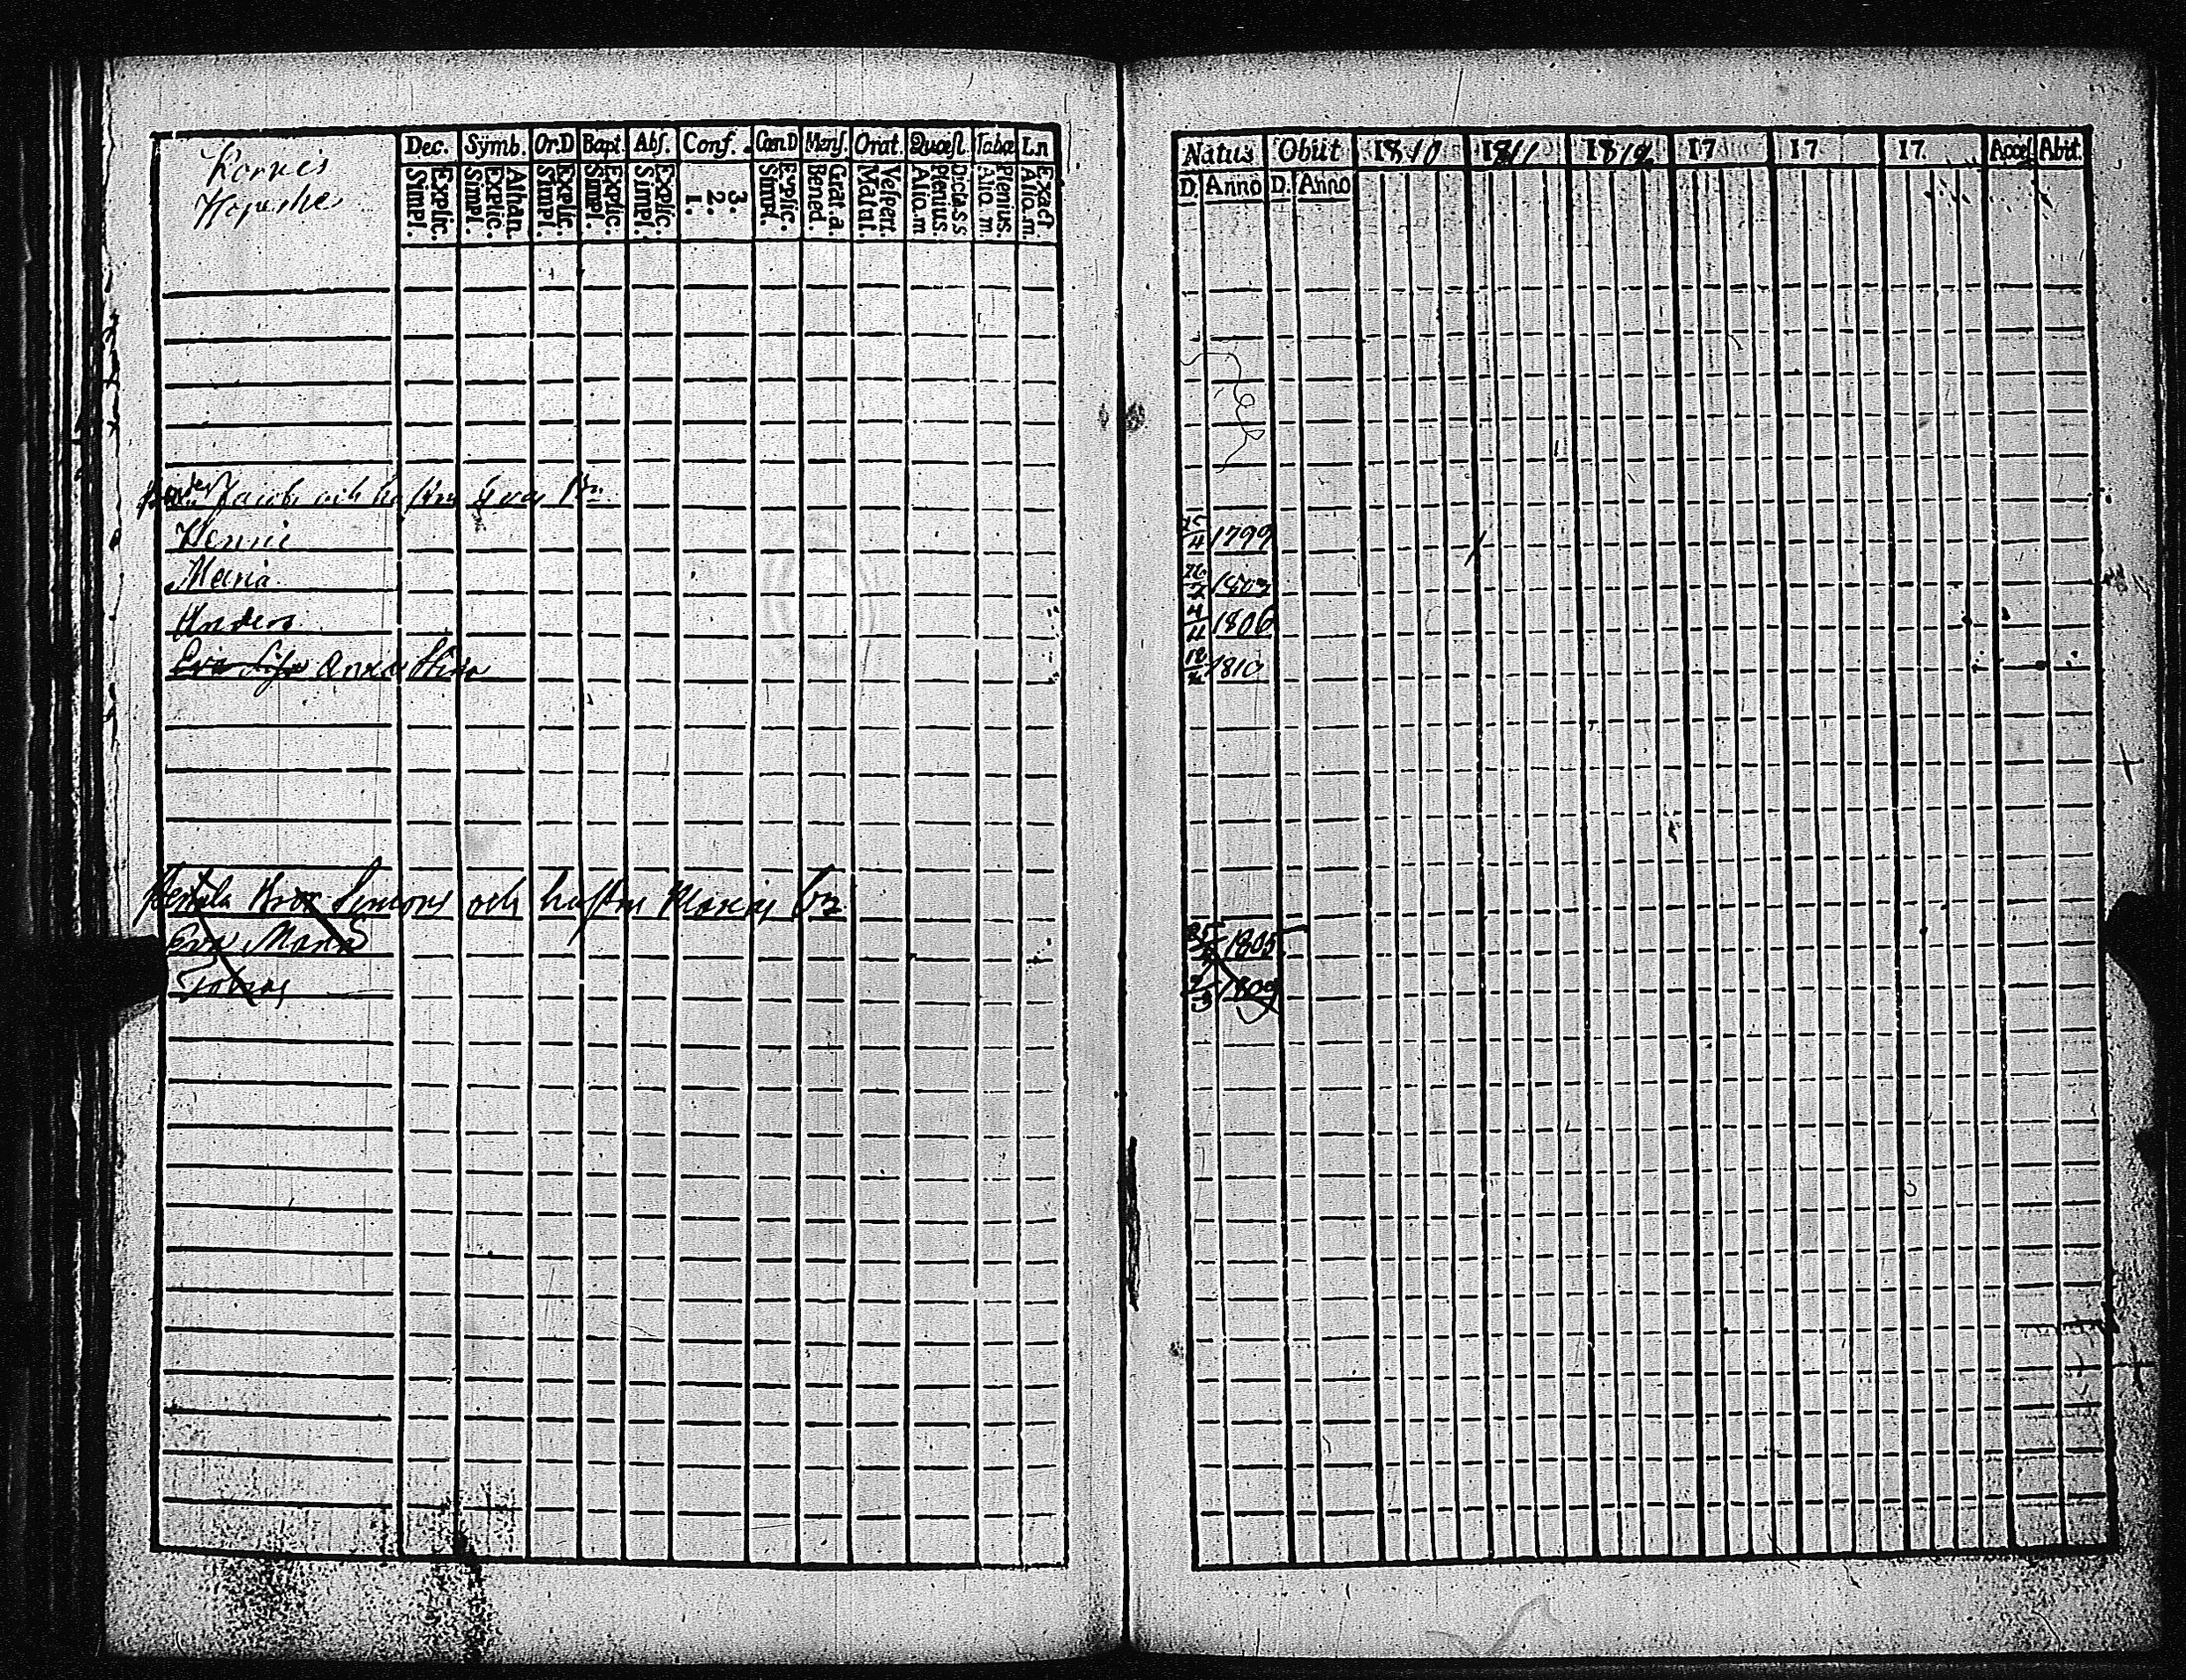 Dec. Symb. Or.D Bapt. Abs. Conf. Cœn D Mens. Orat. Quæst. Tabœ Ln
Explic. Simpl.
Athan. Explic. Simpl.
Explic. Simpl.
Explic. Simpl.
Explic. Simpl.
3. 2. 1.
Explic. Simpl.
Grat. a. Bened.
Vespert. Matut.
Dicta SS Plenius Alio. m
Plenius. Alio. m
Exact Alio. m.
Jacobs och hustru
Henric
Maria
Anders
Eva Lisa Anna Stina
Simons och hustru Marias
Eva Maria
Tobias
Natus Obiit 1810 1811 1812 17 17. 17. Acces. Abit.
D. Anno D. Anno
1799
4/4 1806
1810
1805
1809